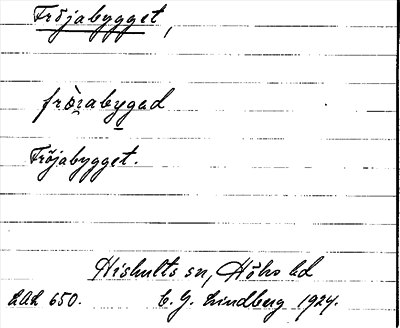 Fröjabygget,
fròrabygad
Fröjabygget.
Hishults sn, Höks hd
LAL 650. C. G. Lindberg 1924.